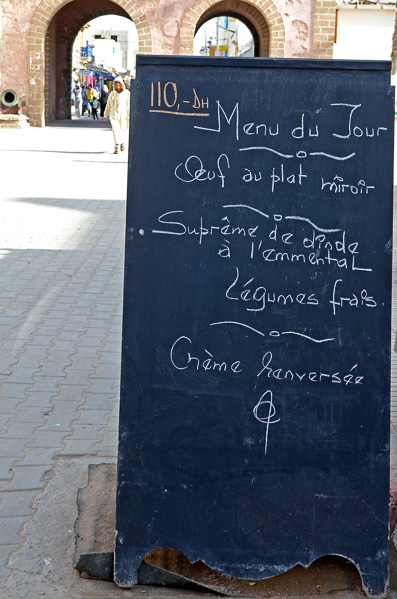 110,-DH
Menu du Jour
Œuf au plat miroir
. Suprême de dinde
à l'emmental
Légumes frais.
Crème renversée